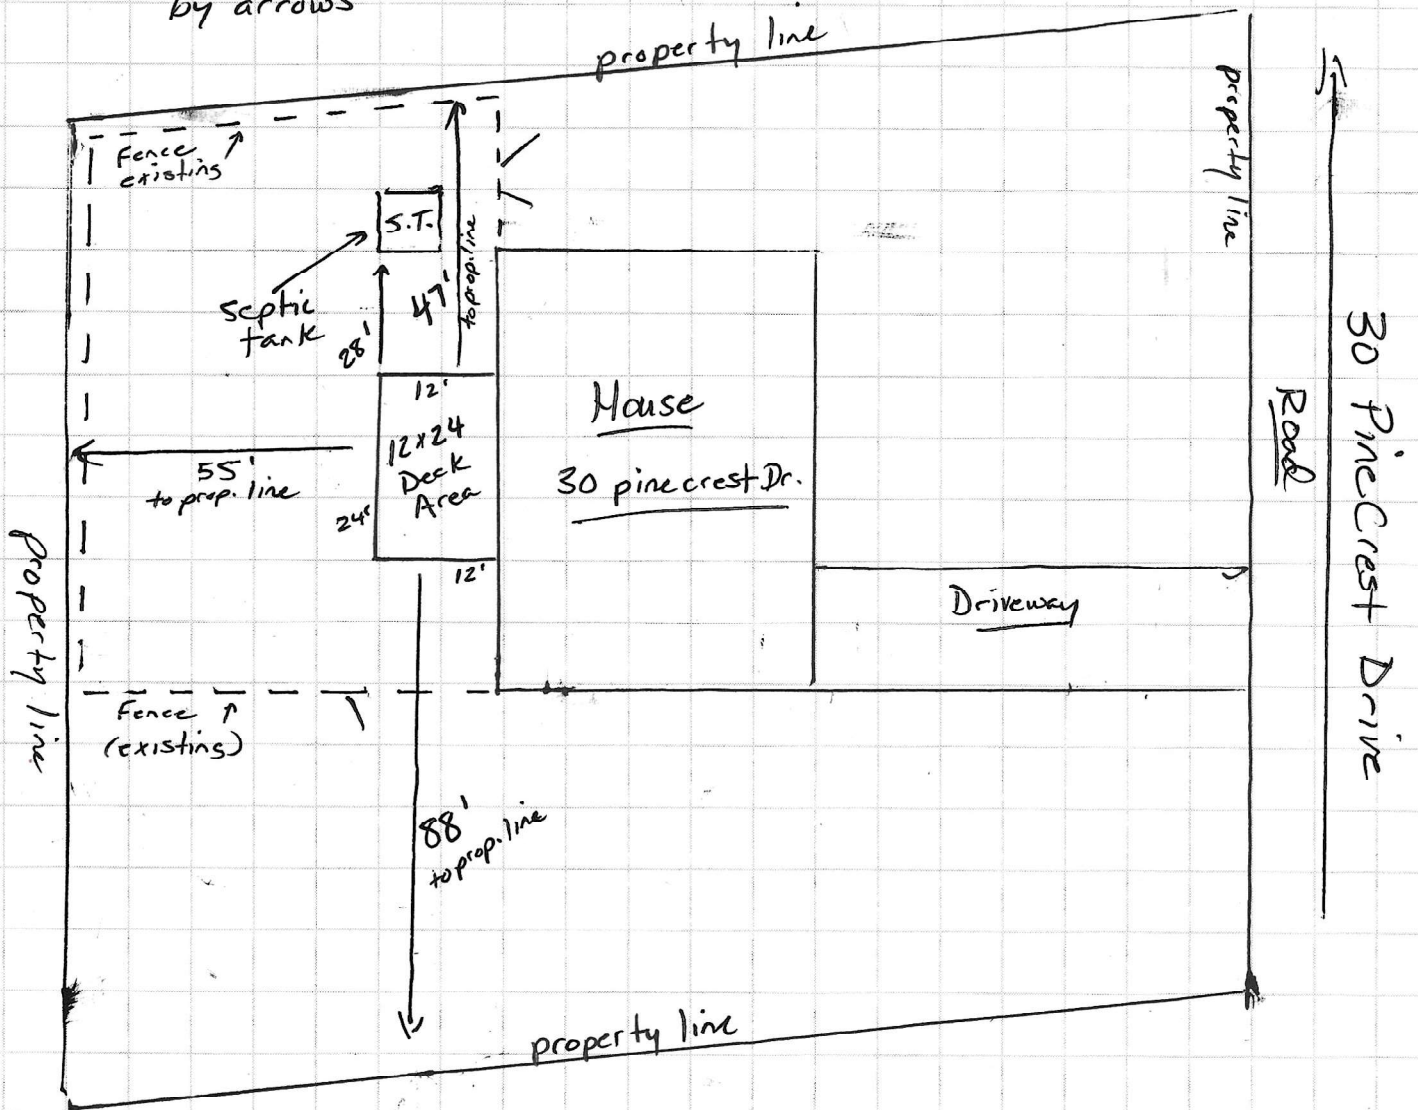 by arrows
property line
property line
Fence
existing
S.T.
septic
tank
47'
to prop. line
28'
12'
12x24
Deck
Area
24'
12'
55'
to prop. line
House
30 pinecrest Dr.
Road
30 PineCrest Drive
Driveway
property line
Fence
(existing)
88'
to prop. line
property line